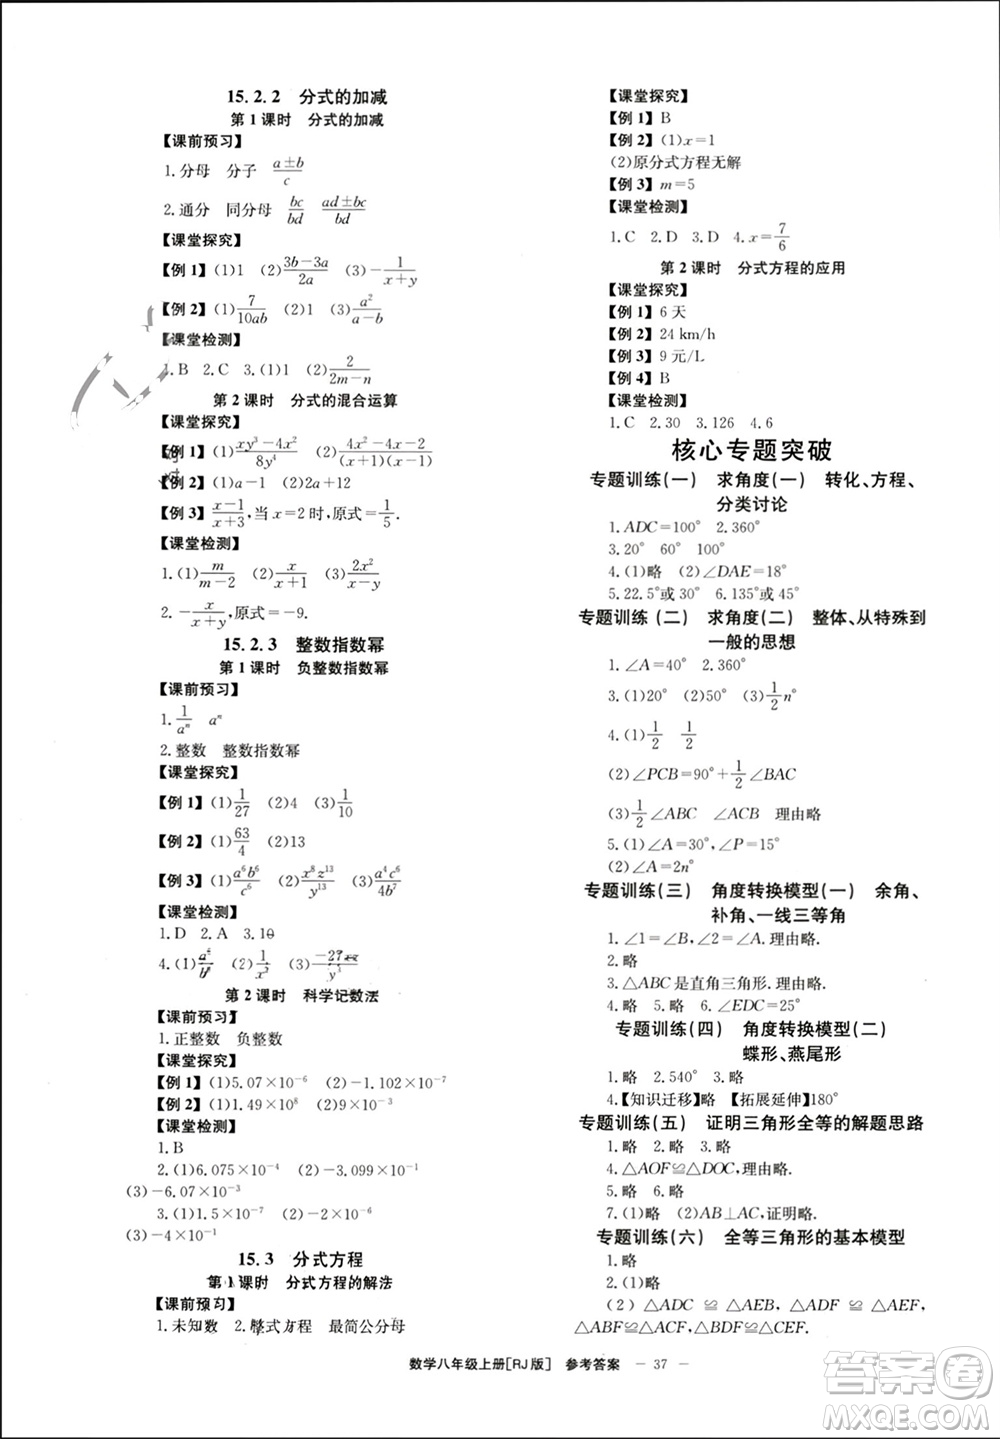 15.2.2 分式的加减
第1课时 分式的加减
【课前预习】
1.分母 分子 (a±b)/c
2.通分 同分母 bc/bd (ad±bc)/bd
【课堂探究】
【例1】(1)1 (2)(3b−3a)/2a (3)−1/(x+y)
【例2】(1)7/10ab (2)a²/(a−b)
【课堂检测】
1.B 2.C 3.(1)1 (2)2/(2m−n)
第2课时 分式的混合运算
【课堂探究】
【例1】(1)(xy³−4x²)/8y⁴ (2)(4x²−4x−2)/((x+1)(x−1))
【例2】(1)a−1 (2)2a+12
【例3】(x−1)/(x+3),当x=2时,原式=1/5.
【课堂检测】
1.(1)m/(m−2) (2)x/(x+1) (3)2x²/(x−y)
2.−x/(x+y),原式=−9.
15.2.3 整数指数幂
第1课时 负整数指数幂
【课前预习】
1.1/aⁿ aⁿ
2.整数 整数指数幂
【课堂探究】
【例1】(1)1/27 (2)4 (3)1/10
【例2】(1)63/4 (2)13
【例3】(1)a⁶b⁶/c⁶ (2)x⁸z¹³/y¹³ (3)a⁴c⁶/4b⁷
【课堂检测】
1.D 2.A 3.10
4.(1) (2) (3)
第2课时 科学记数法
【课前预习】
1.正整数 负整数
【课堂探究】
【例1】(1)5.07×10⁻⁶ (2)−1.102×10⁻⁷
【例2】(1)1.49×10⁸ (2)9×10⁻³
【课堂检测】
1.B
2.(1)6.075×10⁻⁴ (2)−3.099×10⁻¹
(3)−6.07×10⁻³
3.(1)1.5×10⁻⁷ (2)−2×10⁻⁴
(3)−4×10⁻¹
15.3 分式方程
第1课时 分式方程的解法
【课前预习】
1.未知数 2.整式方程 最简公分母
【课堂探究】
【例1】B
【例2】(1)x=1
(2)原分式方程无解
【例3】m=5
【课堂检测】
1.C 2.D 3.D 4.x=7/6
第2课时 分式方程的应用
【课堂探究】
【例1】6天
【例2】24 km/h
【例3】9元/L
【例4】B
【课堂检测】
1.C 2.30 3.126 4.6
核心专题突破
专题训练(一) 求角度(一) 转化、方程、
分类讨论
1.ADC=100° 2.360°
3.20° 60° 100°
4.(1)略 (2)∠DAE=18°
5.22.5°或30° 6.135°或45°
专题训练(二) 求角度(二) 整体、从特殊到
一般的思想
1.∠A=40° 2.360°
3.(1)20° (2)50° (3)1/2 n°
4.(1)1/2 1/2
(2)∠PCB=90°+1/2∠BAC
(3)1/2∠ABC ∠ACB 理由略
5.(1)∠A=30°,∠P=15°
(2)∠A=2n°
专题训练(三) 角度转换模型(一) 余角、
补角、一线三等角
1.∠1=∠B,∠2=∠A.理由略.
2.略
3.△ABC是直角三角形.理由略.
4.略 5.略 6.∠EDC=25°
专题训练(四) 角度转换模型(二)
蝶形、燕尾形
1.略 2.540° 3.略
4.【知识迁移】略 【拓展延伸】180°
专题训练(五) 证明三角形全等的解题思路
1.略 2.略 3.略
4.△AOF≌△DOC,理由略.
5.略 6.略
7.(1)略 (2)AB⊥AC,证明略.
专题训练(六) 全等三角形的基本模型
1.略
2.(1)略
(2)△ADC≌△AEB,△ADF≌△AEF,
△ABF≌△ACF;理由略.
数学八年级上册[RJ版] 参考答案 — 37 —
答案圈
MXQE.COM